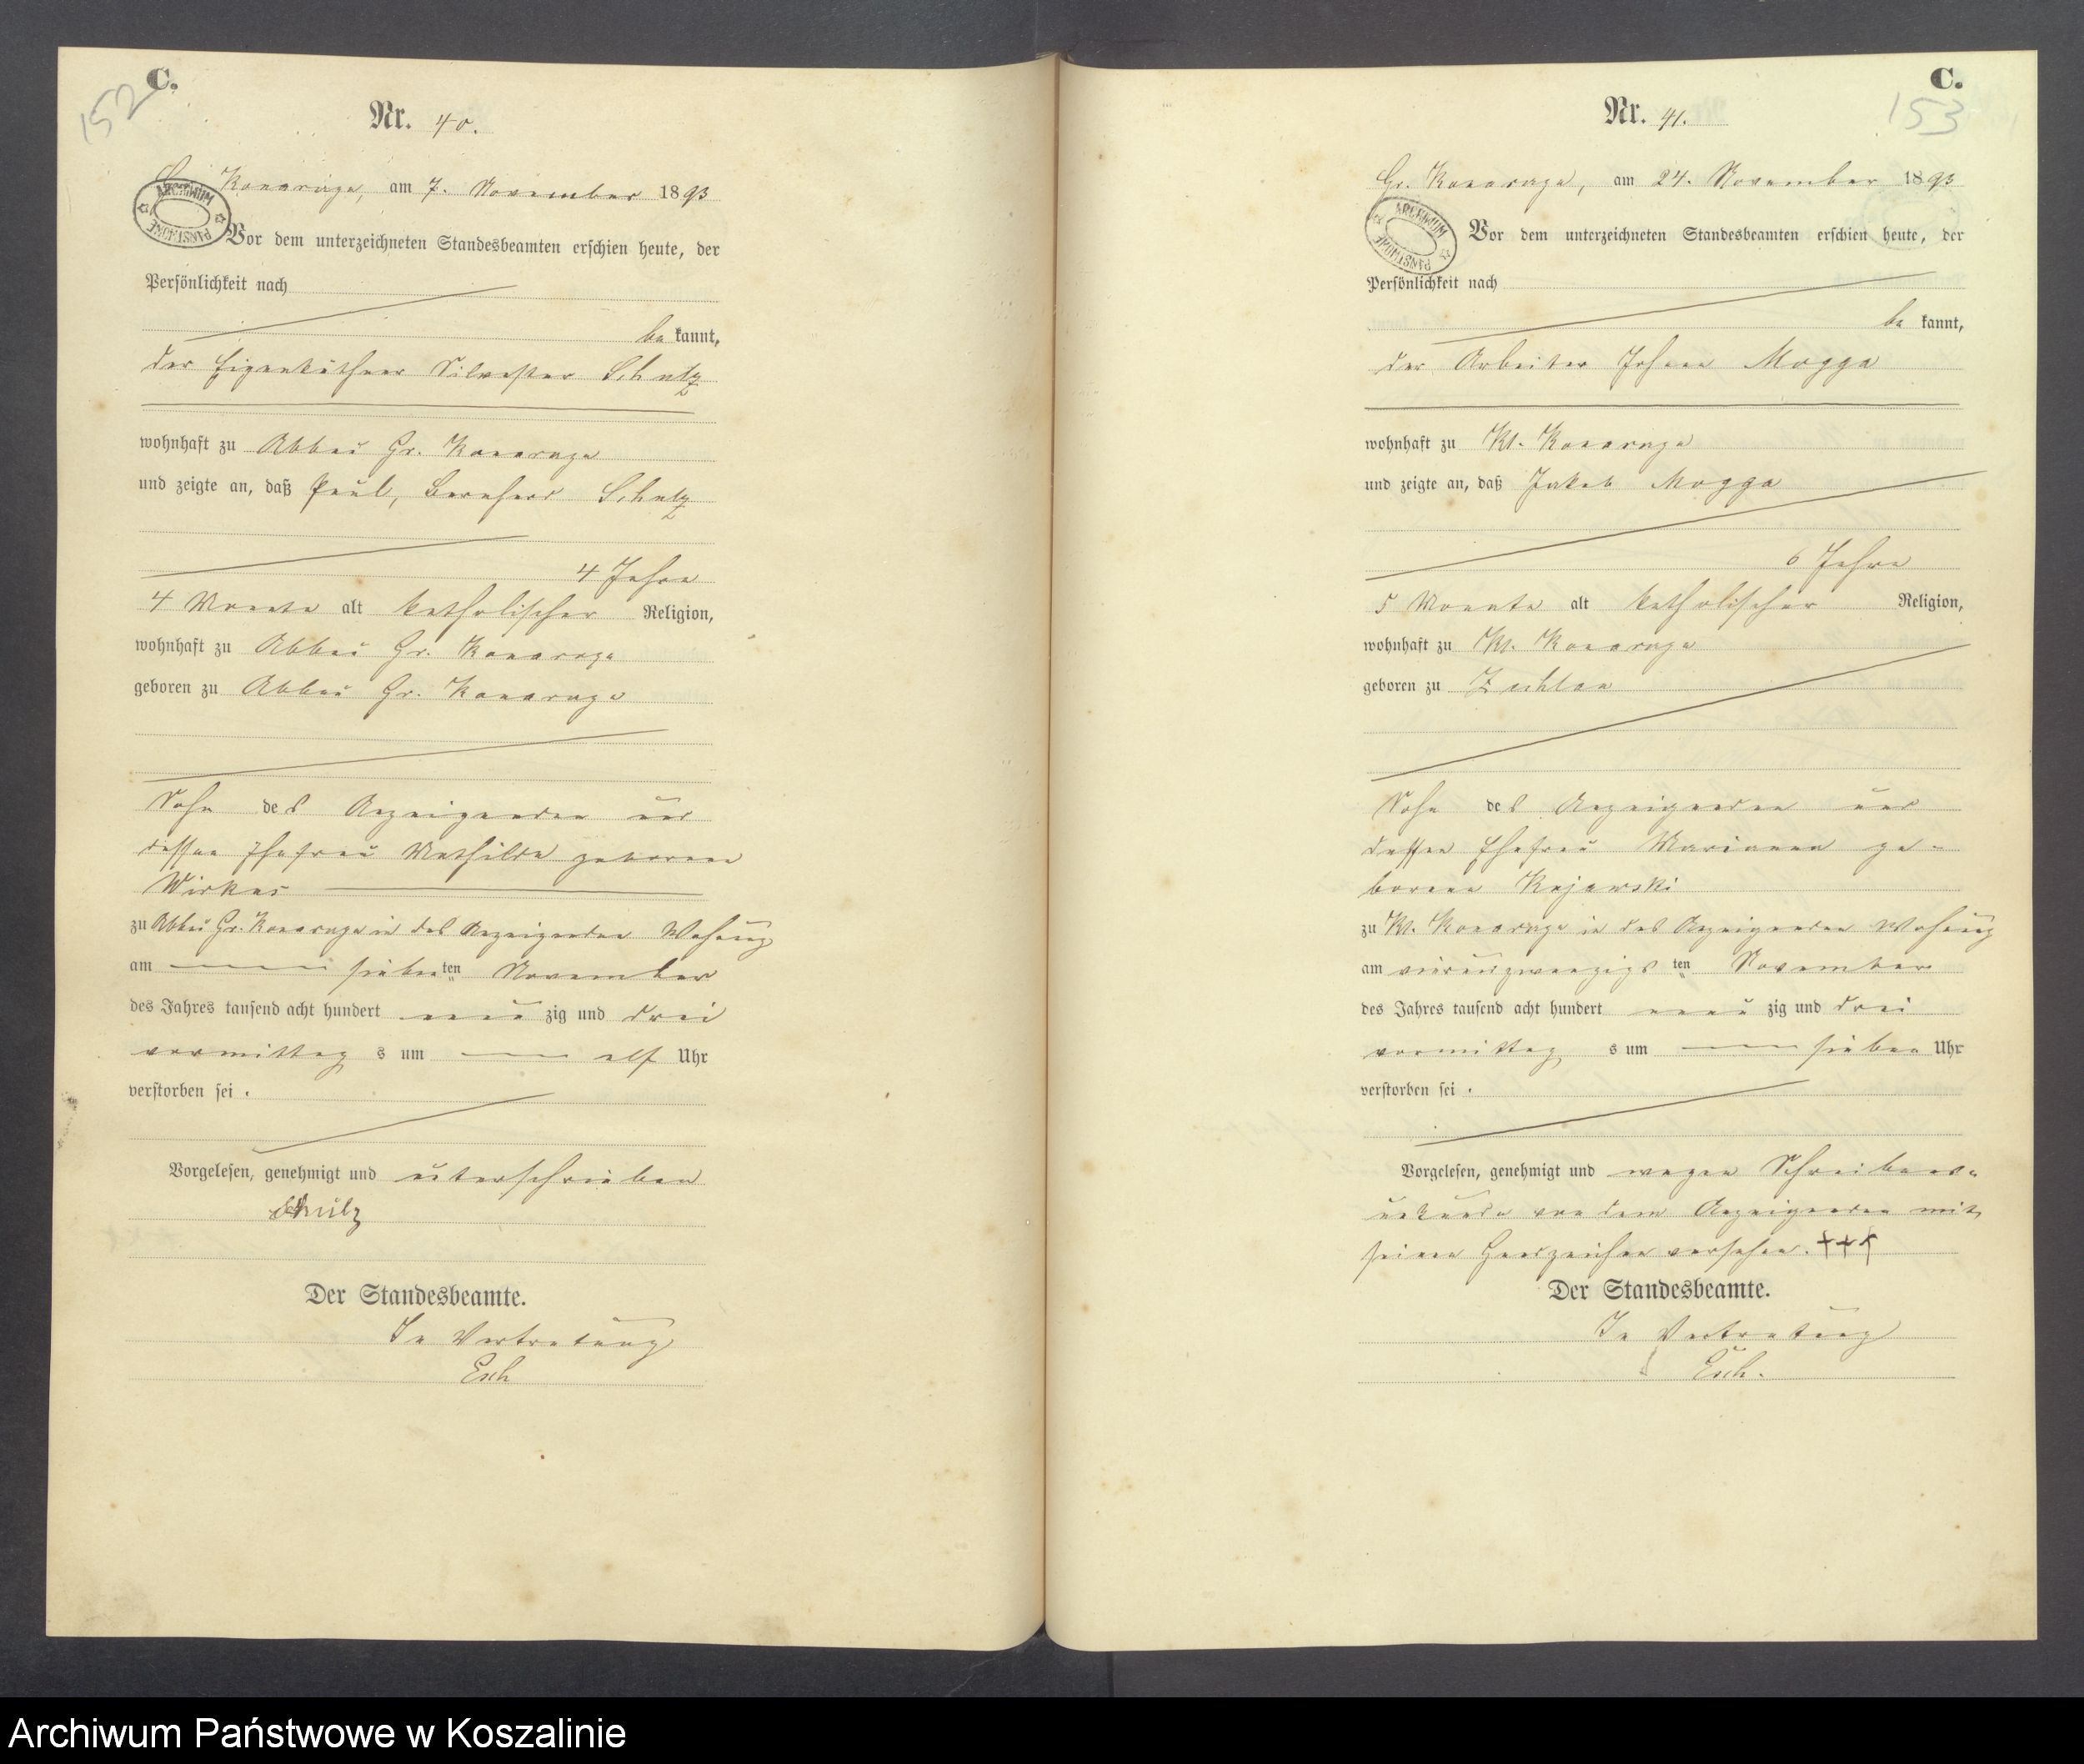 152
C.
Nr. 40.
Gr. Konarczyn, am 7. November 1893
ARCHIWUM PAŃSTWOWE
Vor dem unterzeichneten Standesbeamten erschien heute, der
Persönlichkeit nach
be kannt,
der Eigenkäthner Silvester Schulz
wohnhaft zu Abbau Gr. Konarczyn
und zeigte an, daß Paul, Bernhard Schulz
4 Jahre
4 Monate alt katholischer Religion,
wohnhaft zu Abbau Gr. Konarczyn
geboren zu Abbau Gr. Konarczyn
Sohn des Anzeigenden und
dessen Ehefrau Mathilde geborene
Wirkus
zu Abbau Gr. Konarczyn in des Anzeigenden Wohnung
am siebenten November
des Jahres tausend acht hundert neunzig und drei
vormittags um elf Uhr
verstorben sei.
Vorgelesen, genehmigt und unterschrieben
Schulz
Der Standesbeamte.
In Vertretung
153
C.
Nr. 41.
Gr. Konarczyn, am 24. November 1893
ARCHIWUM PAŃSTWOWE
Vor dem unterzeichneten Standesbeamten erschien heute, der
Persönlichkeit nach
be kannt,
der Arbeiter Johann Mogga
wohnhaft zu Kl. Konarczyn
und zeigte an, daß Jakob Mogga
6 Jahre
5 Monate alt katholischer Religion,
wohnhaft zu Kl. Konarczyn
geboren zu Zechlau
Sohn des Anzeigenden und
dessen Ehefrau Marianna ge-
borene Kujawski
zu Kl. Konarczyn in des Anzeigenden Wohnung
am vierundzwanzigsten November
des Jahres tausend acht hundert neunzig und drei
vormittags um sieben Uhr
verstorben sei.
Vorgelesen, genehmigt und wegen Schreibens-
unkunde von dem Anzeigenden mit
seinem Handzeichen versehen. +++
Der Standesbeamte.
In Vertretung
Archiwum Państwowe w Koszalinie